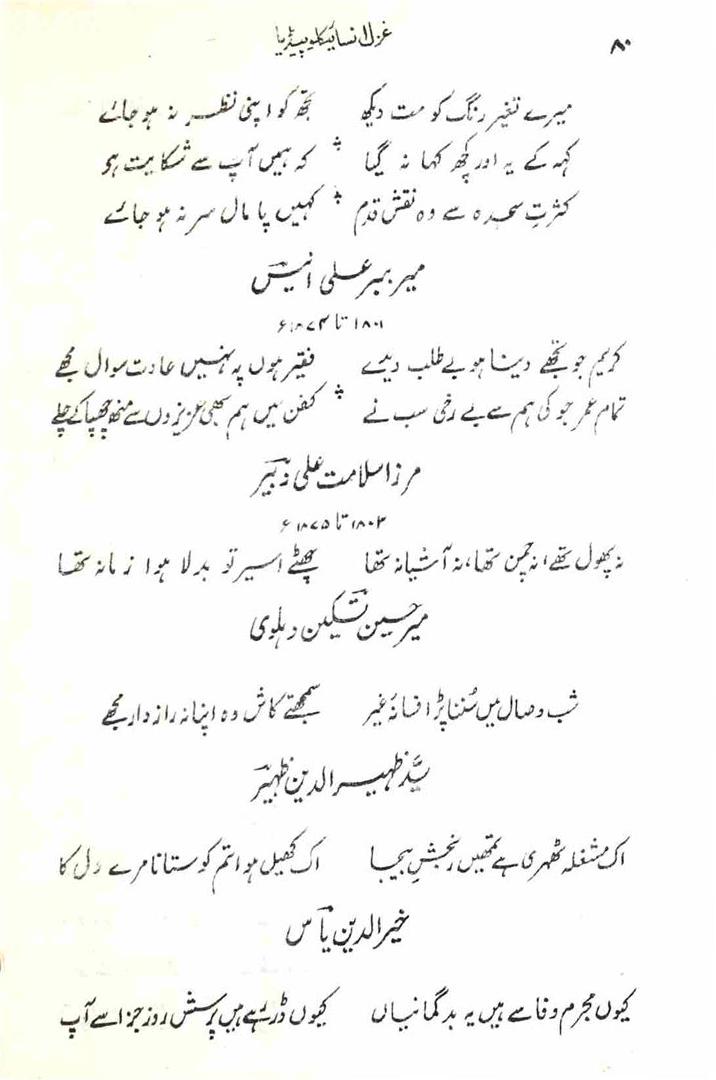 ۸۰ غزل انسائیکلوپیڈیا
میرے تغیر رنگ کو مت دیکھ تجھ کو اپنی نظر نہ ہو جائے
کہہ کے یہ اور کچھ کہا نہ گیا کہ ہمیں آپ سے شکایت ہو
کثرتِ سجدہ سے وہ نقش قدم کہیں پامال سر نہ ہو جائے
میر ببر علی انیس
۱۸۰۱ تا ۱۸۷۴ء
کریم جو تجھے دینا ہو بے طلب دیدے فقیر ہوں پہ نہیں عادت سوال مجھے
تمام عمر جو کی ہم سے بے رخی سب نے کفن میں ہم بھی عزیزوں سے منھ چھپا کے چلے
مرزا سلامت علی دبیر
۱۸۰۳ تا ۱۸۷۵ء
نہ پھول تھے، نہ چمن تھا، نہ آشیانہ تھا چھٹے اسیر تو بدلا ہوا زمانہ تھا
میر حسین تسکین دہلوی
شب وصال میں سُننا پڑا افسانۂ غیر سمجھتے کاش وہ اپنا نہ رازدار مجھے
سیّد ظہیر الدین ظہیر
اک مشغلہ ٹھہری ہے تمھیں رنجشِ بیجا اک کھیل ہوا تم کو ستانا مرے دل کا
خیر الدین یاس
کیوں مجرم وفا سے ہیں یہ بدگمانیاں کیوں ڈر رہے ہیں پرسش روز جزا سے آپ